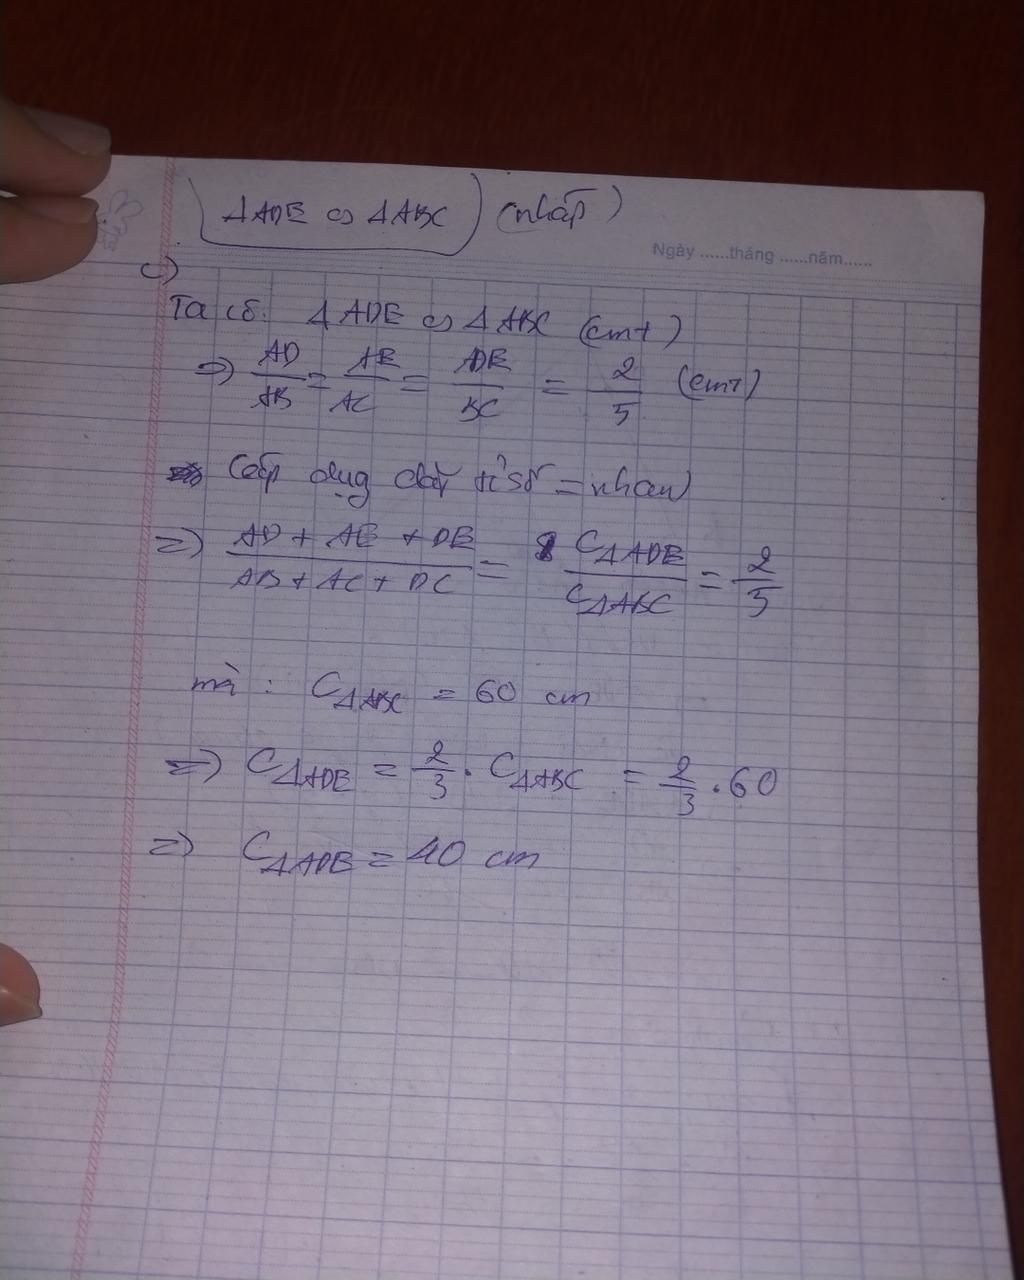 ΔADE ∽ ΔABC (nháp)
Ngày ......tháng ......năm......
c)
Ta có: ΔADE ∽ ΔABC (cmt)
=> AD/AB = AE/AC = DE/BC = 2/3 (cmt)
dụng dãy tỉ số = nhau
=> (AD + AE + DE)/(AB + AC + DC) = CΔADE/CΔABC = 2/3
mà: CΔABC = 60 cm
=> CΔADE = 2/3 . CΔABC = 2/3 . 60
=> CΔADE = 40 cm